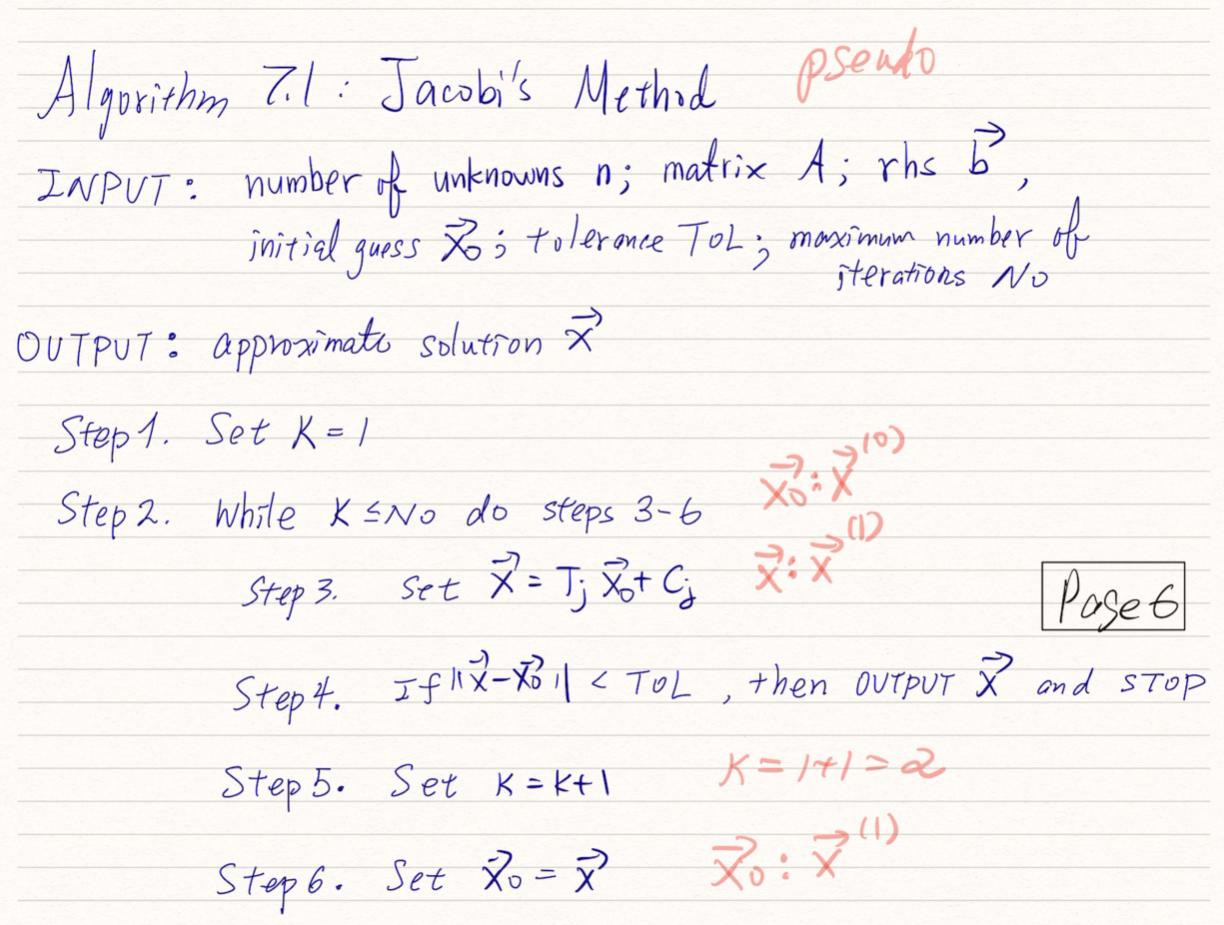 Algorithm 7.1 : Jacobi's Method pseudo
INPUT : number of unknowns n; matrix A; rhs b⃗,
initial guess x⃗₀; tolerance TOL; maximum number of
iterations No
OUTPUT : approximate solution x⃗
Step 1. Set K = 1
x⃗₀ : x⃗⁽⁰⁾
Step 2. While K ≤ No do steps 3-6
x⃗ : x⃗⁽¹⁾
Step 3. Set x⃗ = Tj x⃗₀ + Cj
Page 6
Step 4. If ||x⃗ - x⃗₀|| < TOL, then OUTPUT x⃗ and STOP
Step 5. Set K = K+1 K = 1+1 = 2
Step 6. Set x⃗₀ = x⃗ x⃗₀ : x⃗⁽¹⁾